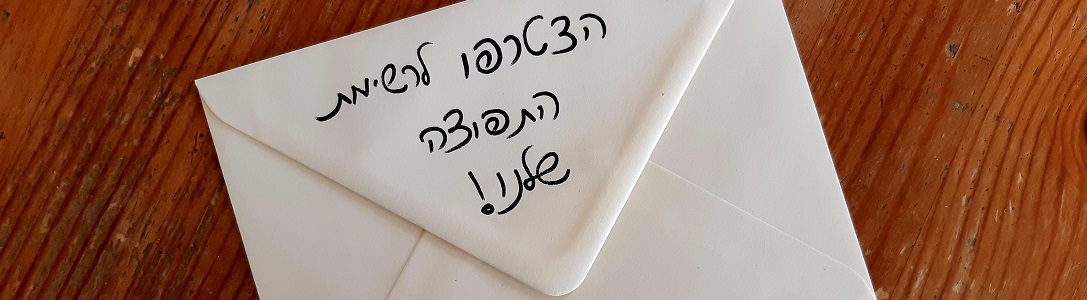 הצטרפו לרשימת
התפוצה
שלנו!